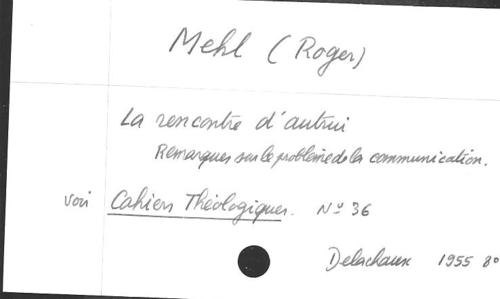 Mehl (Roger)
La rencontre d'autrui
Remarques sur le problème de la communication.
voir Cahiers Théologiques. Nº 36
Delachaux 1955 8º